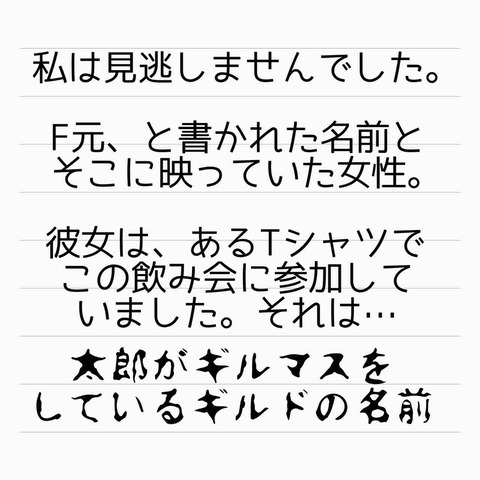 私は見逃しませんでした。
F元、と書かれた名前と
そこに映っていた女性。
彼女は、あるTシャツで
この飲み会に参加して
いました。それは…
太郎がギルマスを
しているギルドの名前